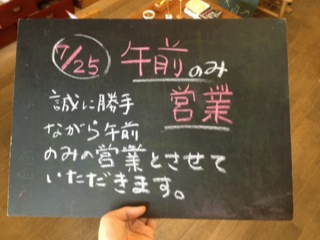 7/25 午前のみ
営業
誠に勝手
ながら午前
のみの営業とさせて
いただきます。